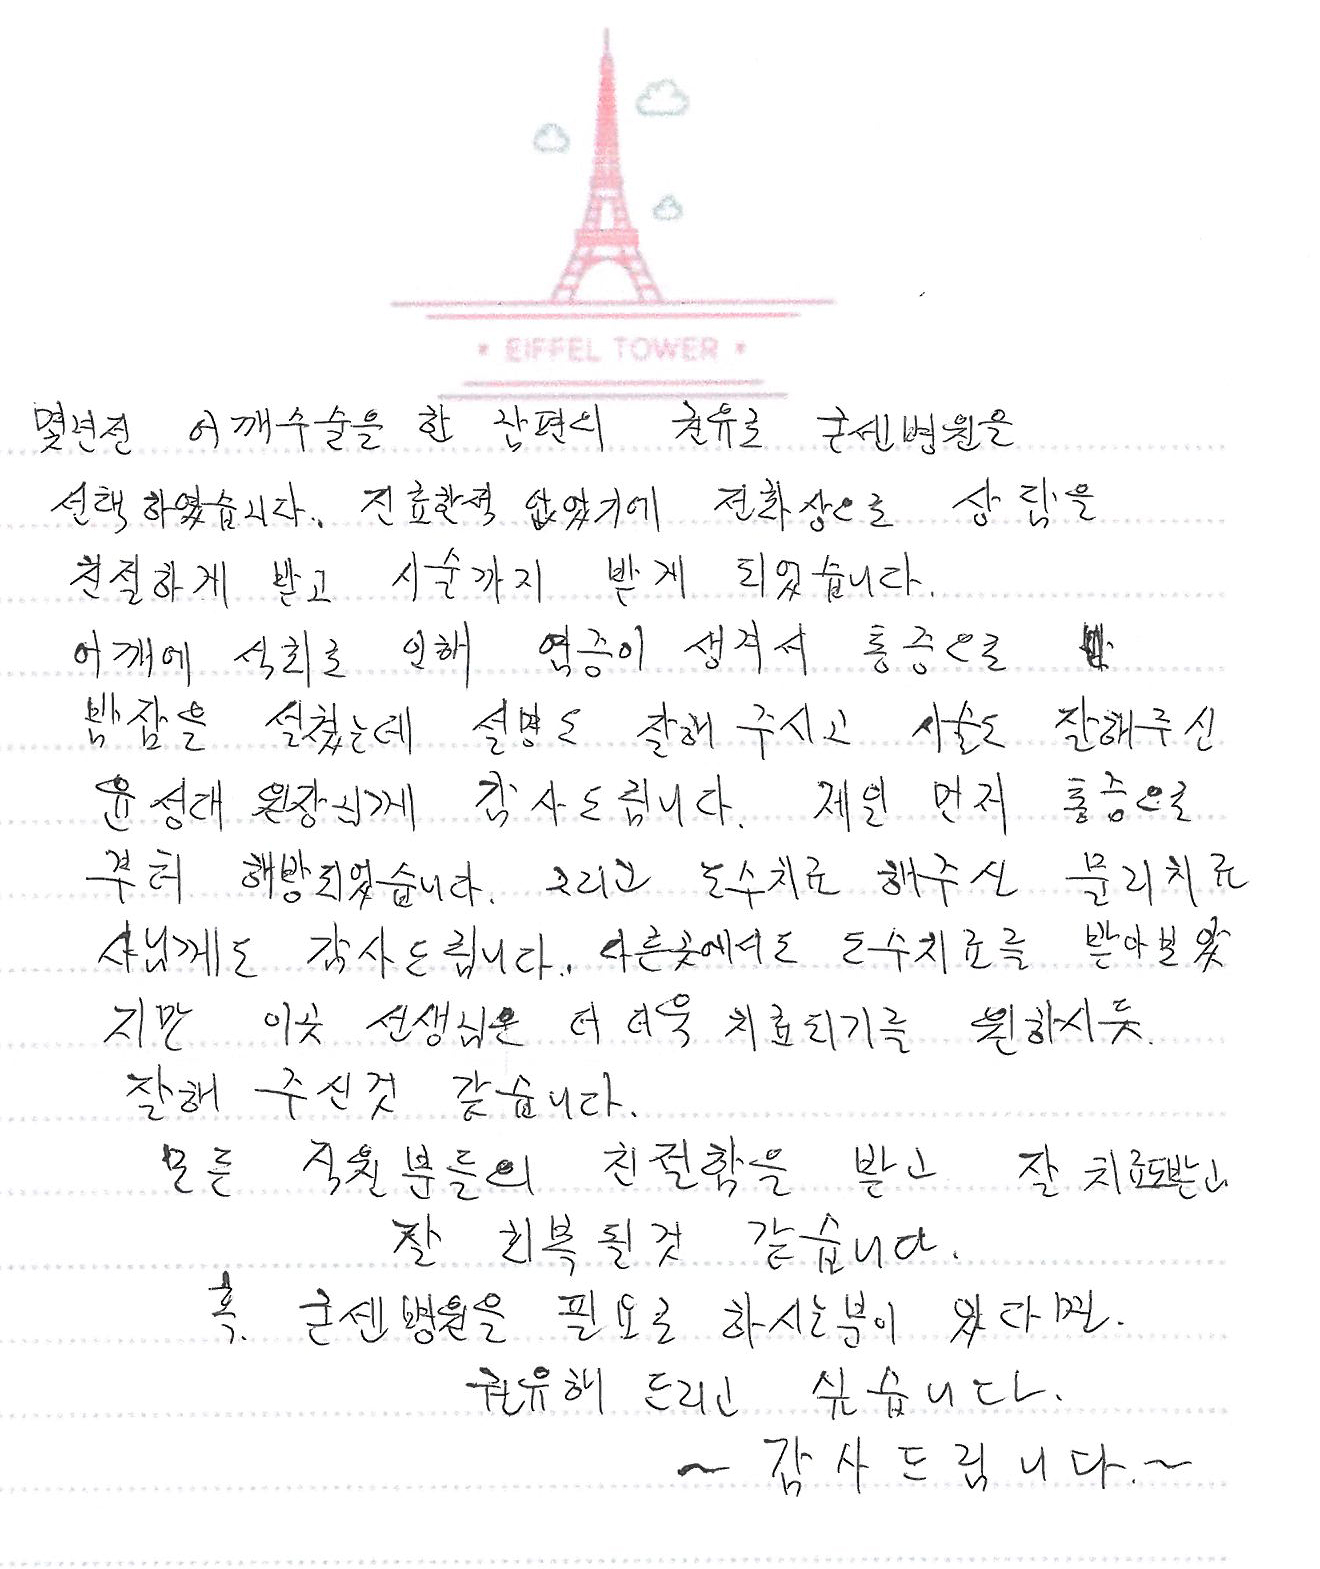 EIFFEL TOWER
몇년전 어깨수술을 한 남편의 권유로 굳센병원을
선택하였습니다. 진료한적 없었기에 전화상으로 상담을
친절하게 받고 시술까지 받게 되었습니다.
어깨에 석회로 인해 염증이 생겨서 통증으로
밤잠을 설쳤는데 설명도 잘해 주시고 시술도 잘해주신
윤성대 원장님께 감사드립니다. 제일 먼저 통증으로
부터 해방되었습니다. 그리고 도수치료 해주신 물리치료
사님께도 감사드립니다. 다른곳에서도 도수치료를 받아보았
지만 이곳 선생님은 더 더욱 치료되기를 원하시듯.
잘해 주신것 같습니다.
모든 직원분들의 친절함을 받고 잘 치료도받고
잘 회복될것 같습니다.
혹. 굳센병원을 필요로 하시는분이 있다면.
권유해 드리고 싶습니다.
~ 감사드립니다.~